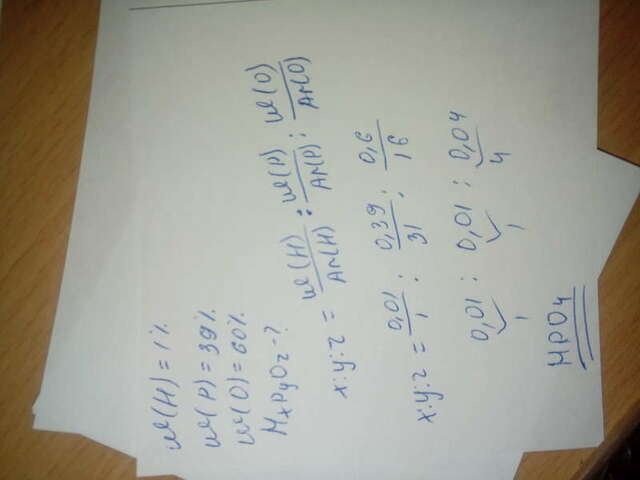 w(H) = 1%
w(P) = 39%
w(O) = 60%
HxPyOz - ?
x:y:z = w(H)/Ar(H) : w(P)/Ar(P) : w(O)/Ar(O)
x:y:z = 0,01/1 : 0,39/31 : 0,6/16
0,01 : 0,01 : 0,04
1 1 4
HPO4